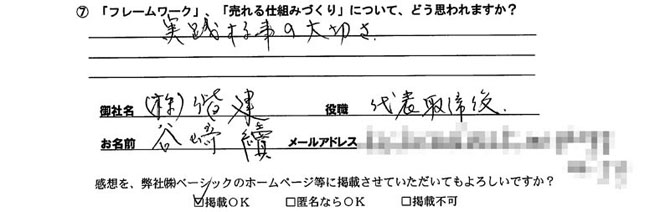 ⑦「フレームワーク」、「売れる仕組みづくり」について、どう思われますか？
実践する事の大切さ
御社名 (株)皆建 役職 代表取締役.
お名前 谷 續 メールアドレス
感想を、弊社㈱ベーシックのホームページ等に掲載させていただいてもよろしいですか？
☑掲載ＯＫ □匿名ならＯＫ □掲載不可